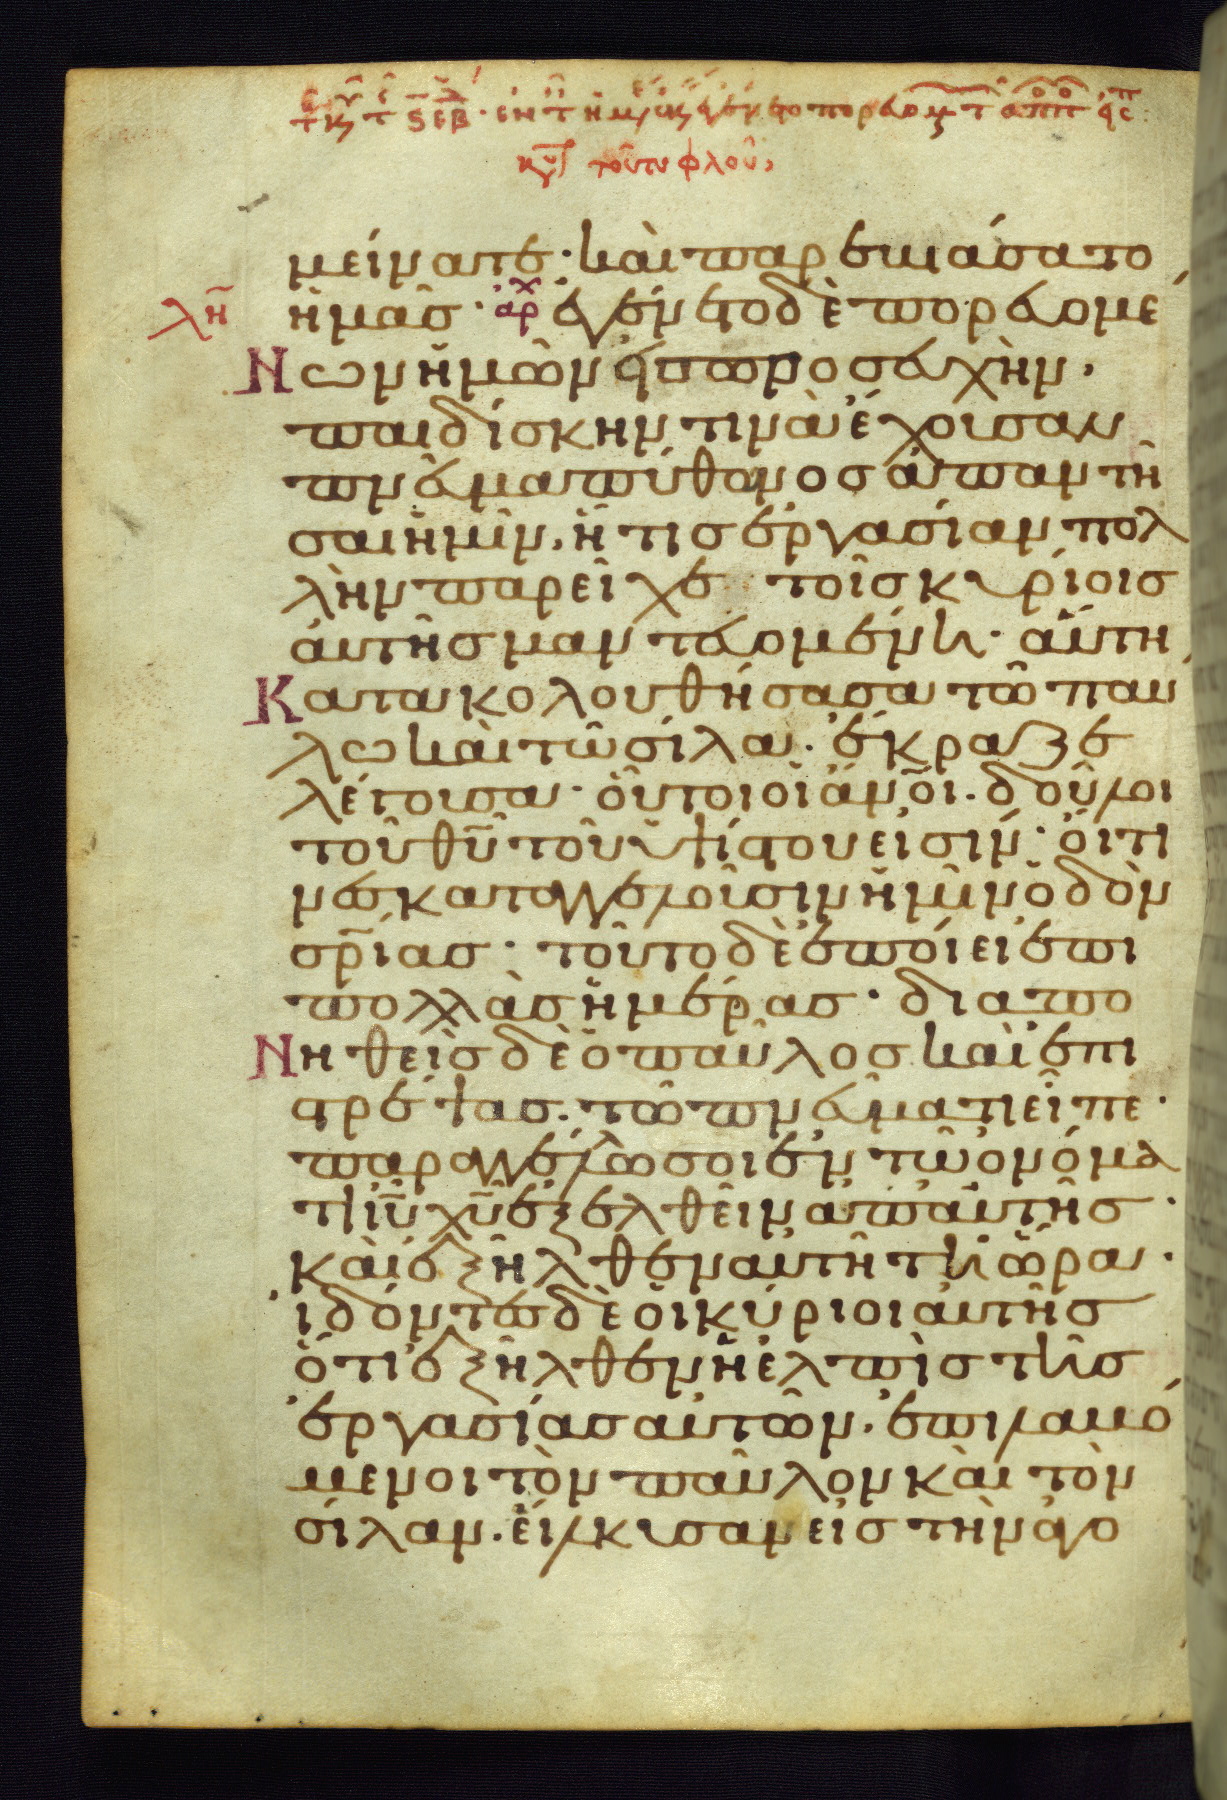 κυ τοῦ τυφλοῦ,
μείνατε· καὶ παρεβιάσατο
λη ἡμᾶς· αρχ ἐγένετο δὲ πορευομέ
Νων ἡμῶν εἰς προσευχὴν,
παιδίσκην τινὰ ἔχουσαν
πνεῦμα πύθωνος ἀπαντῆ
σαι ἡμῖν, ἥτις ἐργασίαν πολ
λὴν παρεῖχε τοῖς κυρίοις
αὐτῆς μαντευομένη· αὕτη
Κατακολουθήσασα τῶ παυ
λω καὶ τῶ σίλα· ἔκραζε
λέγουσα· οὗτοι οἱ ἄνοι· δοῦλοι
τοῦ θυ τοῦ ὑψίστου εἰσίν· οἵτι
νες καταγγέλουσιν ἡμῖν ὁδὸν
σρίας· τοῦτο δὲ ἐποίει ἐπι
πολλὰς ἡμέρας· διαπο
Νηθεὶς δὲ ὁ παῦλος καὶ ἐπι
στρέψας· τῶ πνεύματι εἶπε·
παραγγέλλω σοι ἐν τῶ ὀνόμα
τι ιυ χυ ἐξελθεῖν ἀπ' αὐτῆς·
καὶ ἐξῆλθεν αὐτῆ τῆ ὥρα·
ἰδόντες δὲ οἱ κύριοι αὐτῆς
ὅτι ἐξῆλθεν ἡ ἐλπὶς τῆς
ἐργασίας αὐτῶν· ἐπιλαβό
μενοι τὸν παῦλον καὶ τὸν
σίλαν· εἵλκυσαν εἰς τὴν ἀγο